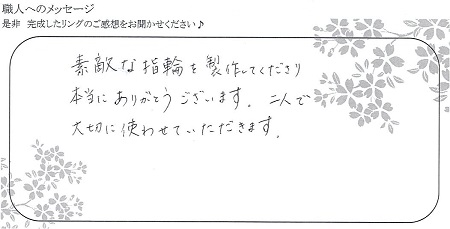 職人へのメッセージ
是非 完成したリングのご感想をお聞かせください♪
素敵な指輪を製作してくださり
本当にありがとうございます。二人で
大切に使わせていただきます。